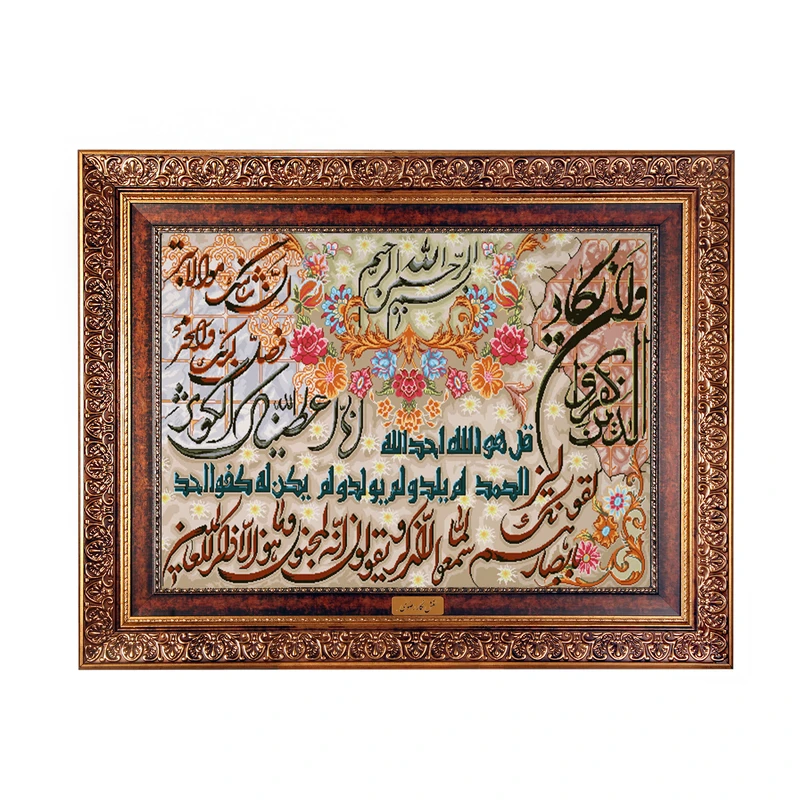 بسم الله الرحمن الرحیم
وان یکاد
الذین کفروا
لیزلقونک
بابصارهم
لما سمعوا الذکر و یقولون انه لمجنون وما هو الا ذکر للعالمین
انا اعطیناک الکوثر
فصل لربک وانحر
ان شانئک هو الابتر
قل هو الله احد الله
الصمد لم یلد و لم یولد و لم یکن له کفوا احد